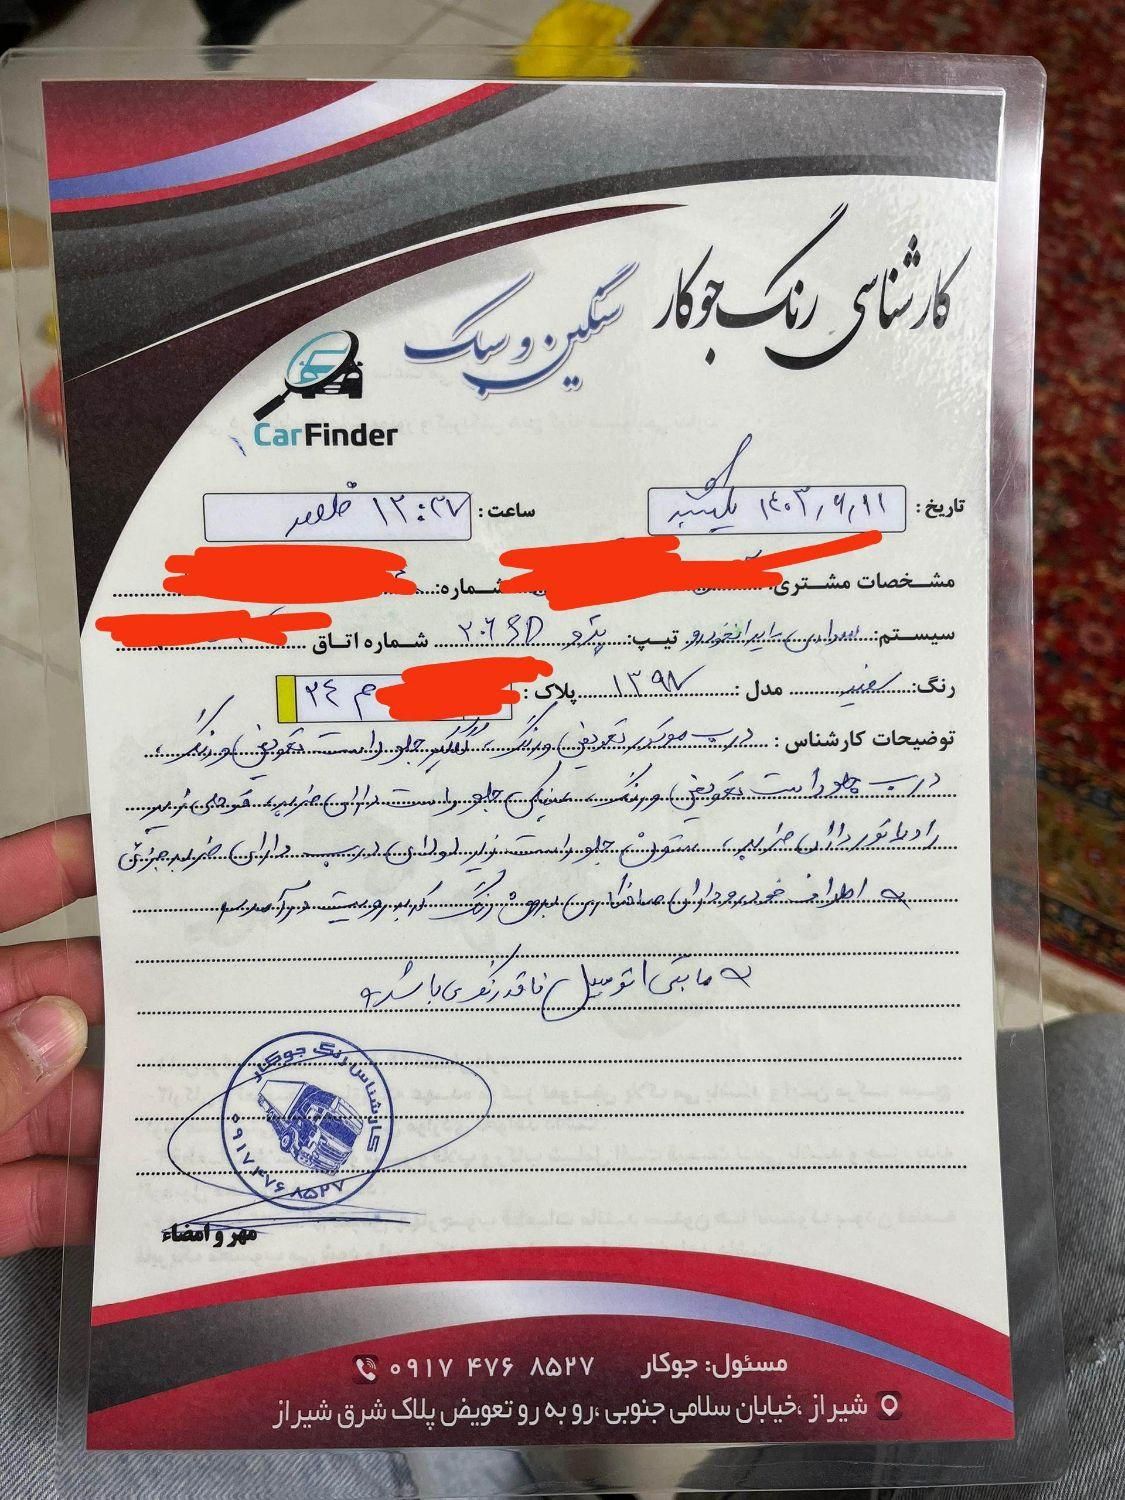 کارشناسی رنگ جوکار
سنگین و سبک
CarFinder
تاریخ: ۱۴۰۳٫۶٫۱۱ یکشنبه ساعت: ۱۲:۳۷ ظهر
مشخصات مشتری: شماره:
سیستم: سواری ایرانخودرو تیپ: پژو ۲۰۶ SD شماره اتاق
رنگ: سفید مدل: ۱۳۹۷ پلاک: م ۲۴
توضیحات کارشناس: درب موتور تعویض و رنگ، گلگیر جلو راست تعویض و رنگ،
درب جلو راست تعویض و رنگ، سینی جلو راست دارای ضربه، قوطی زیر
رادیاتور دارای ضربه، ستون جلو راست زیر لولای درب دارای ضربه جزئی
اطراف خودرو دارای صافکاری بدون رنگ
مابقی اتومبیل فاقد رنگ می باشد
کارشناسی رنگ جوکار
۰۹۱۷ ۴۷۶ ۸۵۲۷
مهر و امضاء
مسئول: جوکار ۰۹۱۷ ۴۷۶ ۸۵۲۷
شیراز ،خیابان سلامی جنوبی ،رو به رو تعویض پلاک شرق شیراز